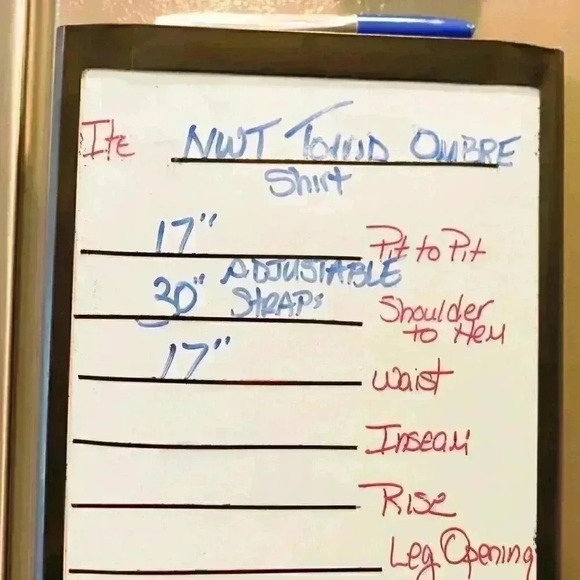 Ite NWT Towid OMBRE
Shirt
17" Pit to Pit
30" ADJUSTABLE STRAPS Shoulder to Hem
17" Waist
Inseam
Rise
Leg Opening